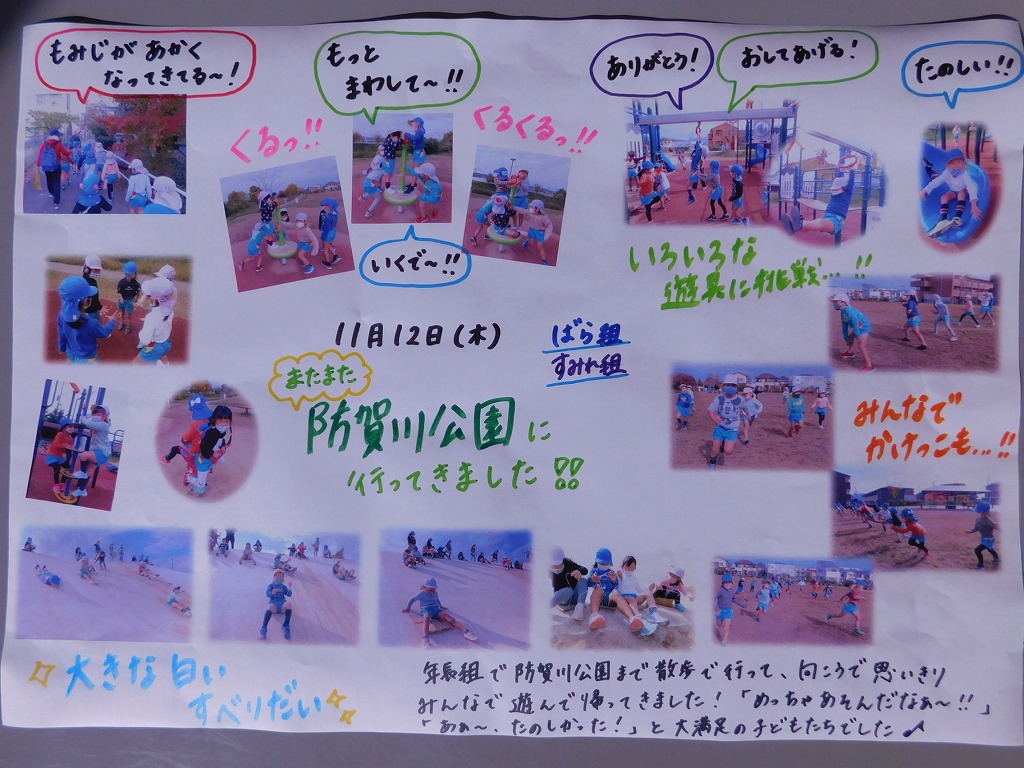 もみじが あかく
なってきてる～！
もっと
まわして～！！
ありがとう！
おしてあげる！
たのしい！！
くるっ！！
くるくるっ！！
いくで～！！
いろいろな
遊具に挑戦…！！
11月12日(木)
ばら組
すみれ組
またまた
防賀川公園に
行ってきました!!
みんなで
かけっこも…！！
大きな白い
すべりだい
年長組で防賀川公園まで散歩で行って、向こうで思いきり
みんなで遊んで帰ってきました！「めっちゃあそんだなぁ～!!」
「あぁ～、たのしかった！」と大満足の子どもたちでした♪